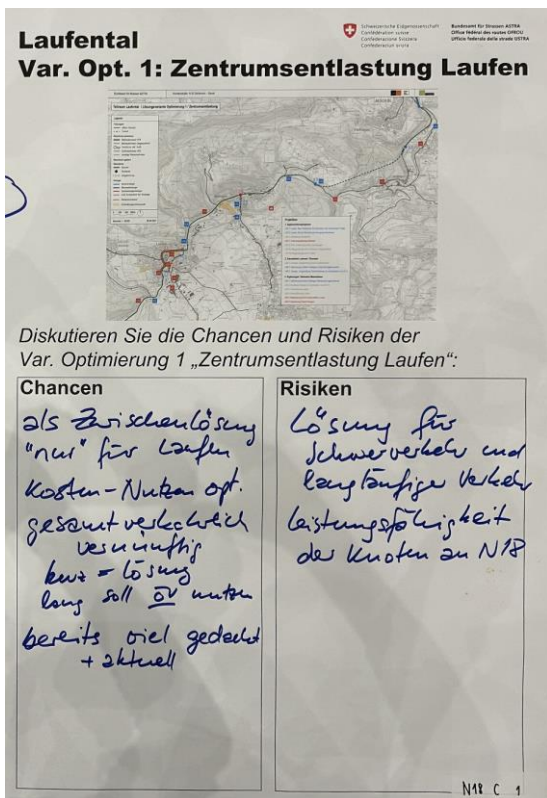 Laufental
Var. Opt. 1: Zentrumsentlastung Laufen
Schweizerische Eidgenossenschaft
Confédération suisse
Confederazione Svizzera
Confederaziun svizra
Bundesamt für Strassen ASTRA
Office fédéral des routes OFROU
Ufficio federale delle strade USTRA
Diskutieren Sie die Chancen und Risiken der
Var. Optimierung 1 „Zentrumsentlastung Laufen“:
Chancen
als Zwischenlösung
"nur" für Laufen
Kosten-Nutzen opt.
gesamtverkehrlich
vernünftig
kurz = Lösung
lang soll öV nutzen
bereits viel gedacht
+ aktuell
Risiken
Lösung für
Schwerverkehr und
langläufiger Verkehr
Leistungsfähigkeit
der Knoten an N18
N18 C 1